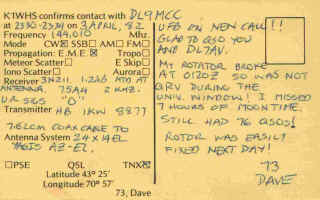 K1WHS confirms contact with DL9MCC
at 2330-2334 on 3 APRIL, 82
Frequency 144,010 Mhz.
Mode CW☒ SSB☐ AM☐ FM☐
Propagation: E.M.E ☒ Tropo☐
Meteor Scatter☐ E Skip☐
Ionic Scatter☐ Aurora☐
Receiver 3N211, 1.2dB MTD AT
ANTENNA, 75A4 2 KHZ.
UR SIGS "O"
Transmitter HB 1KW 8877
7/8 COAX CABLE TO
Antenna System 24 X 14EL
AZ-EL.
☐PSE QSL TNX☒
Latitude 43° 25'
Longitude 70° 57'
73, Dave
UFB ON NEW CALL!!
GLAD TO QSO YOU
AND DL7AV.
MY ROTATOR BROKE
AT 0120Z SO WAS NOT
QRV DURING THE
UNI. WINDOW! I MISSED
7 HOURS OF MOON TIME.
STILL HAD 76 QSOS!
ROTOR WAS EASILY
FIXED NEXT DAY!
73
DAVE